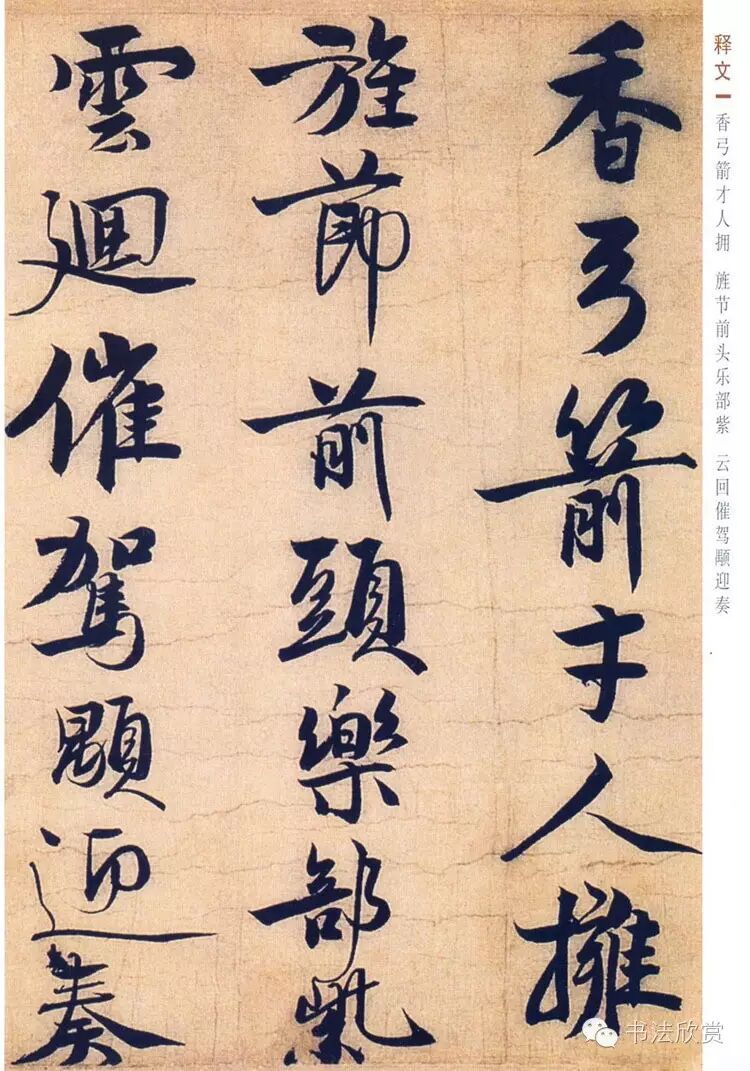 香弓箭才人擁
旌節前頭樂部紫
雲迴催駕顒迎奏
释文
香弓箭才人拥 旌节前头乐部紫 云回催驾颙迎奏
书法欣赏